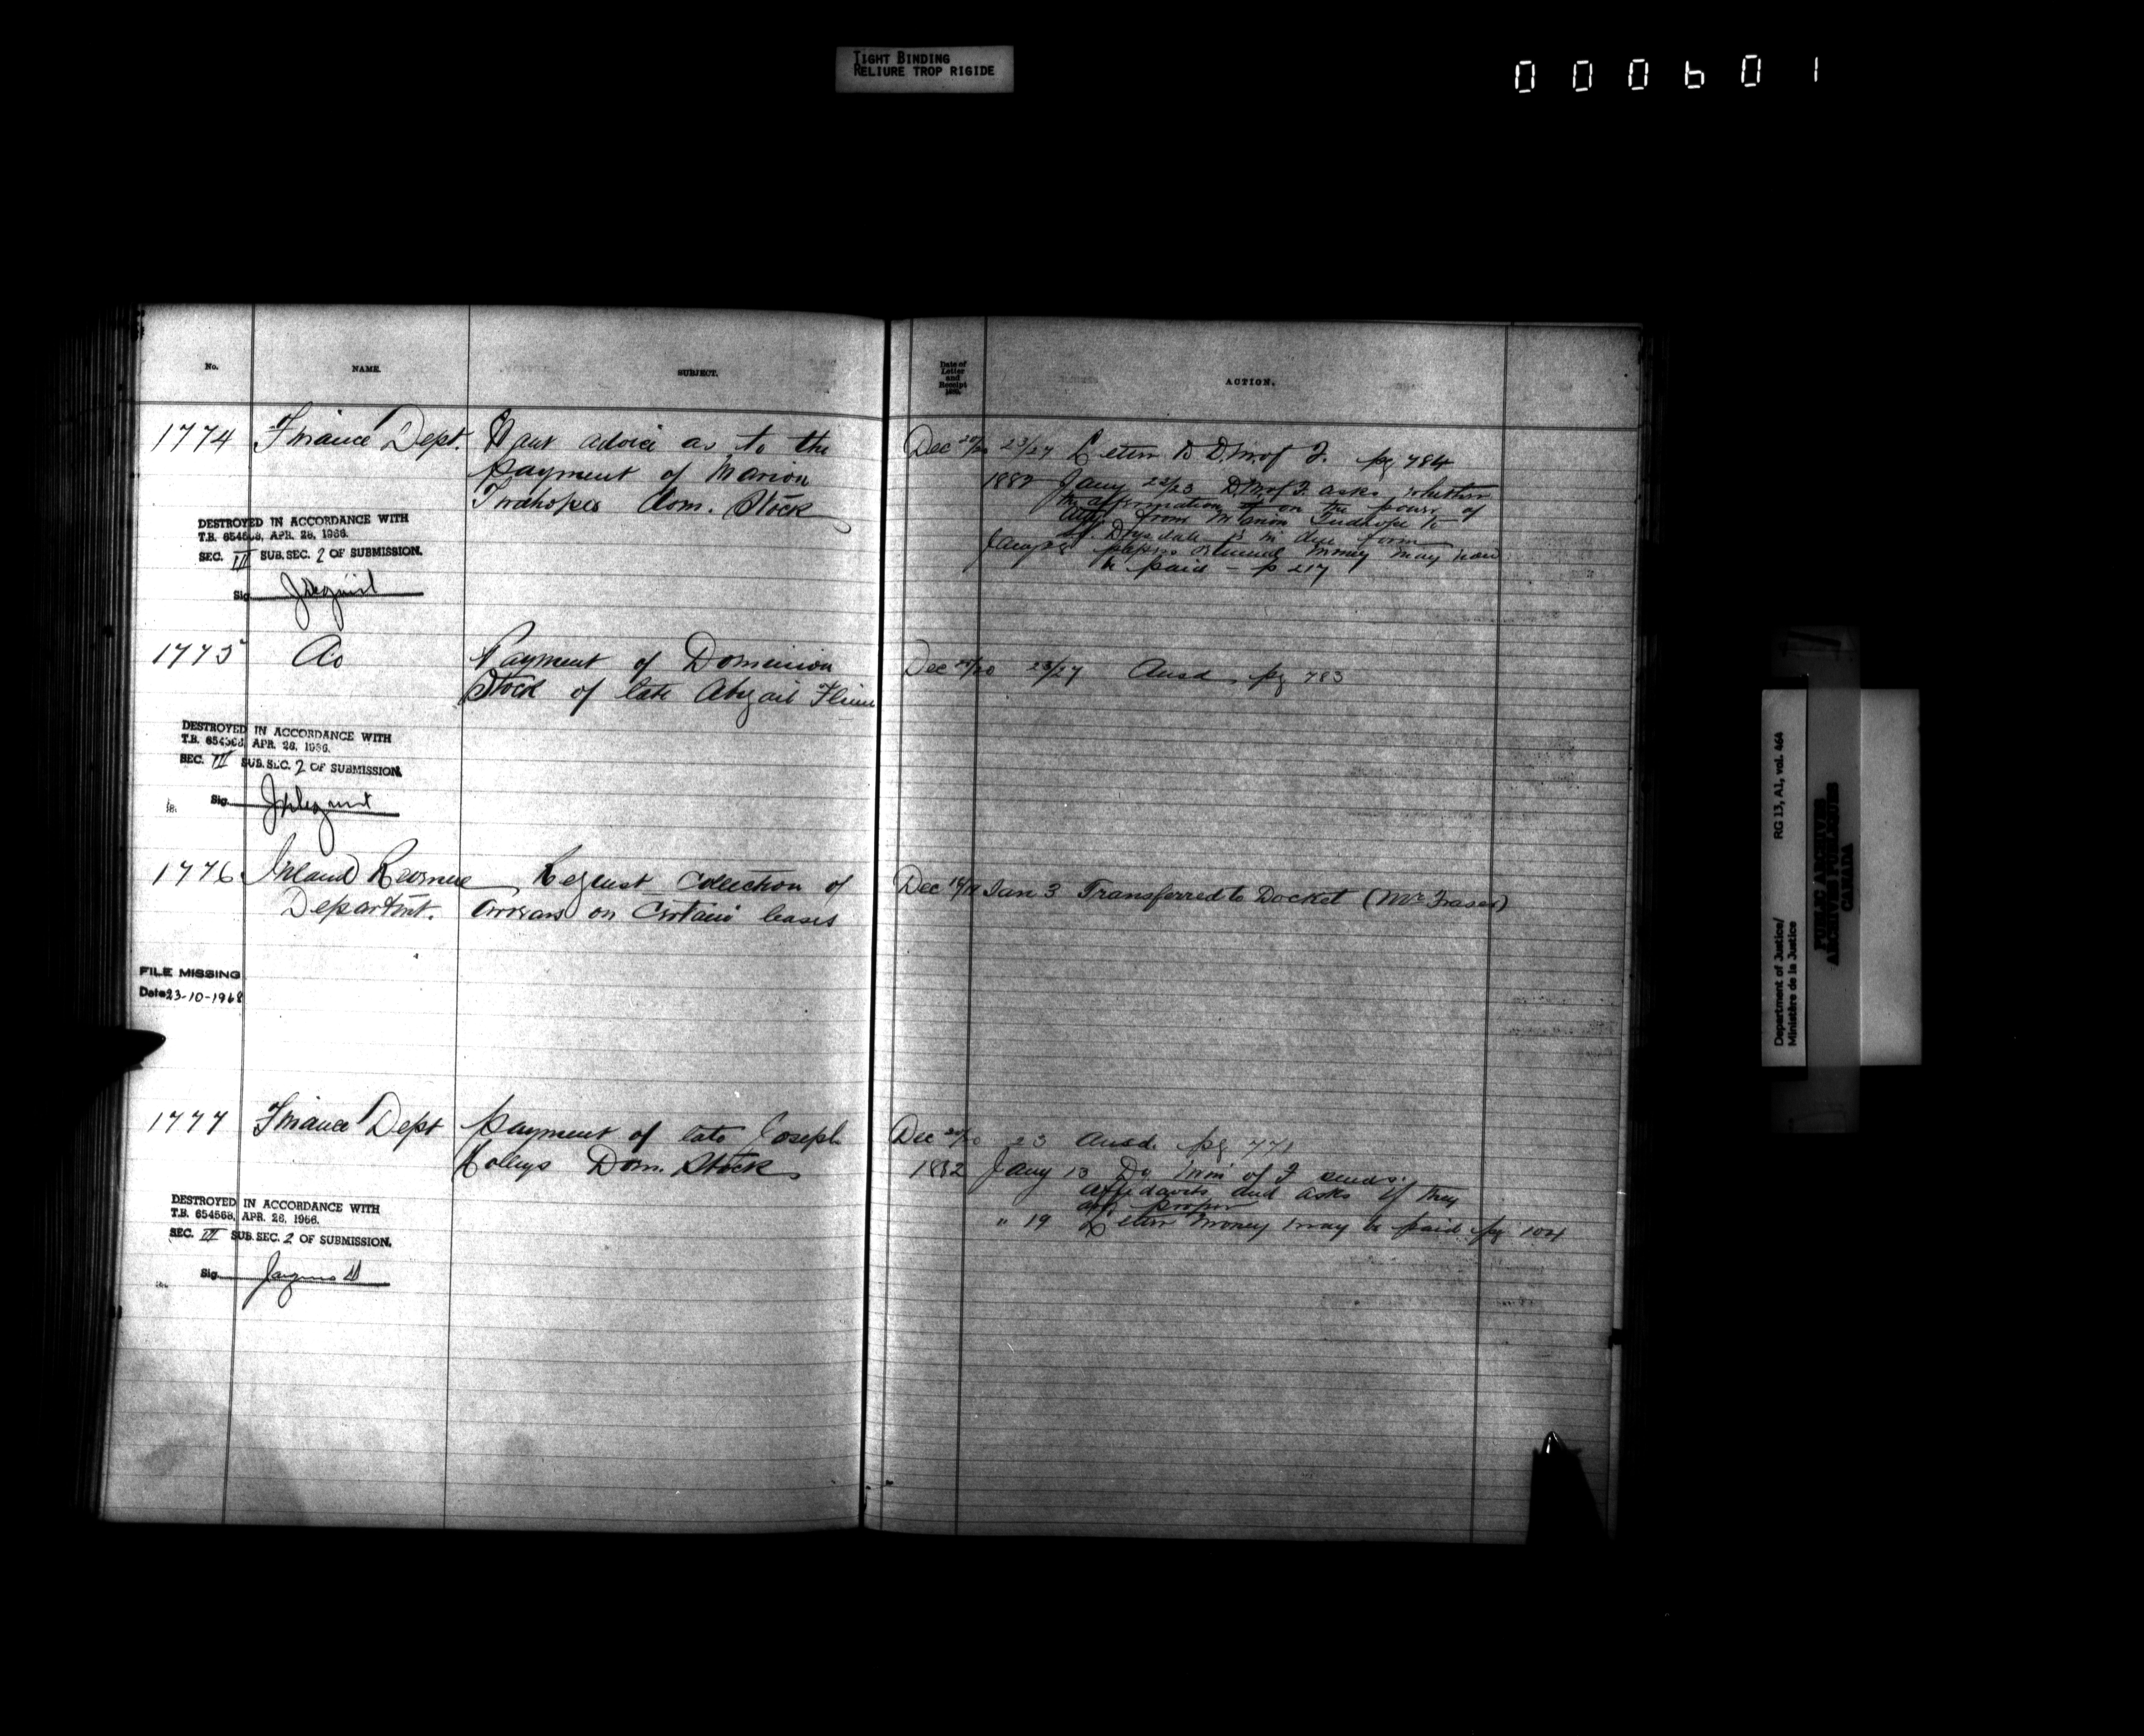 TIGHT BINDING
RELIURE TROP RIGIDE
000601
No.
NAME.
SUBJECT.
Date of
Letter
and
Receipt
ACTION.
1774 Finance Dept. Want advice as to the
payment of Marion
Dom. Stock
DESTROYED IN ACCORDANCE WITH
T.B. 654568, APR. 28, 1966.
SEC. III SUB. SEC. 2 OF SUBMISSION.
Sig.
Dec 20/20 23/27 Letter to D. M. of F. pg 784
1882 Jany 23/23 D. M. of F. asks whether
the affirmation on the power of
atty. from Marion to
Drysdale is in due form
Jany 28 papers returned money may now
be paid - p 217
1775 Do Payment of Dominion
Stock of late Abigail
DESTROYED IN ACCORDANCE WITH
T.B. 654568, APR. 28, 1966.
SEC. III SUB. SEC. 2 OF SUBMISSION.
Sig.
Dec 20/20 23/27 Ansd. pg 783
1776 Inland Revenue Request collection of
Departmt. arrears on certain leases
Dec 19/19 Jan 3 Transferred to Docket (Mr Fraser)
FILE MISSING
Date 23-10-1968
1777 Finance Dept payment of late Joseph
Dom. Stock
DESTROYED IN ACCORDANCE WITH
T.B. 654568, APR. 28, 1966.
SEC. III SUB. SEC. 2 OF SUBMISSION.
Sig.
Dec 20/20 23 Ansd. pg 771
1882 Jany 13 Dy Min of F sends
affidavits and asks if they
are proper
" 19 Letter money may be paid pg 104
Department of Justice/ RG 13, A1, vol. 464
Ministère de la Justice
PUBLIC ARCHIVES
ARCHIVES PUBLIQUES
CANADA